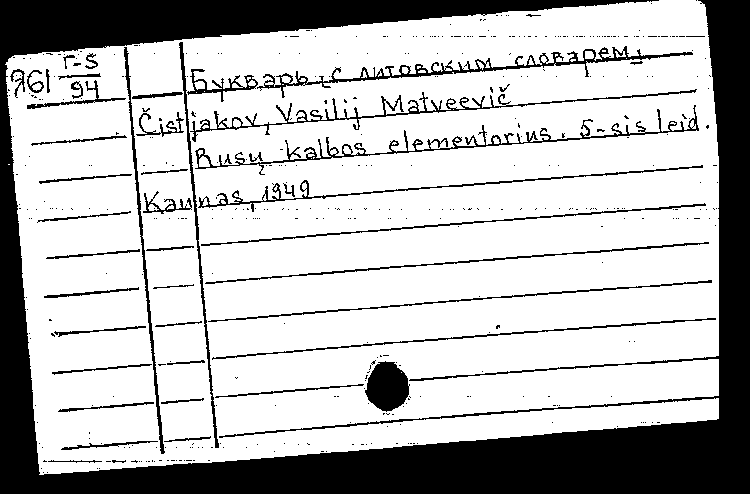 Я61 Г-5/94
Букварь [с литовским словарем]
Čistjakov, Vasilij Matveevič
Rusų kalbos elementorius. 5-sis leid.
Kaunas, 1949